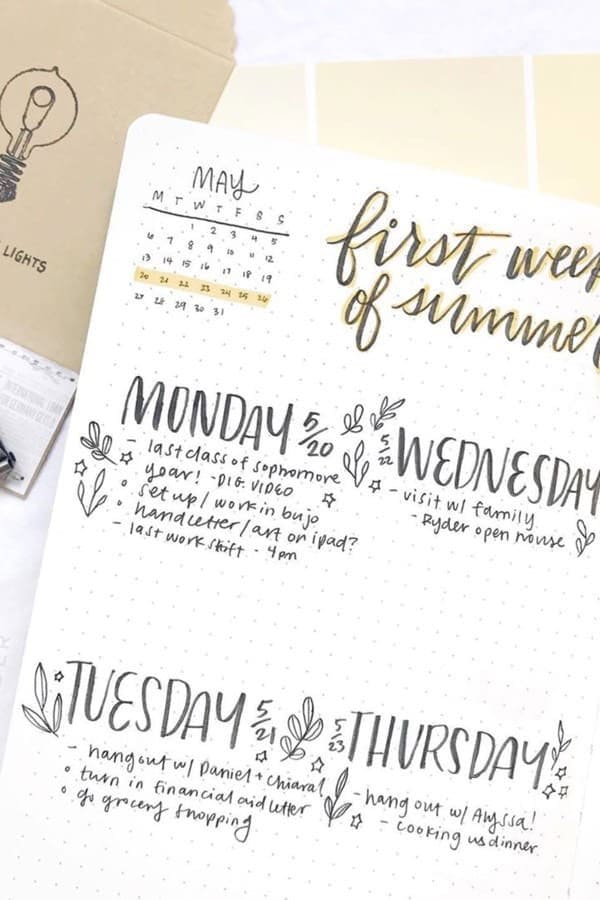 LIGHTS
MAY
M T W T F S S
1 2 3 4 5
6 7 8 9 10 11 12
13 14 15 16 17 18 19
20 21 22 23 24 25 26
27 28 29 30 31
first week
of summer
MONDAY 5/20
- last class of sophomore
year! - DIG. VIDEO
° set up / work in bujo
° handletter / art on ipad?
- last work shift - 4pm
5/22 WEDNESDAY
- visit w/ family
- Ryder open house
TUESDAY 5/21
- hang out w/ Daniel + Chiara!
° turn in financial aid letter
° go grocery shopping
5/23 THURSDAY
- hang out w/ Alyssa!
- cooking us dinner